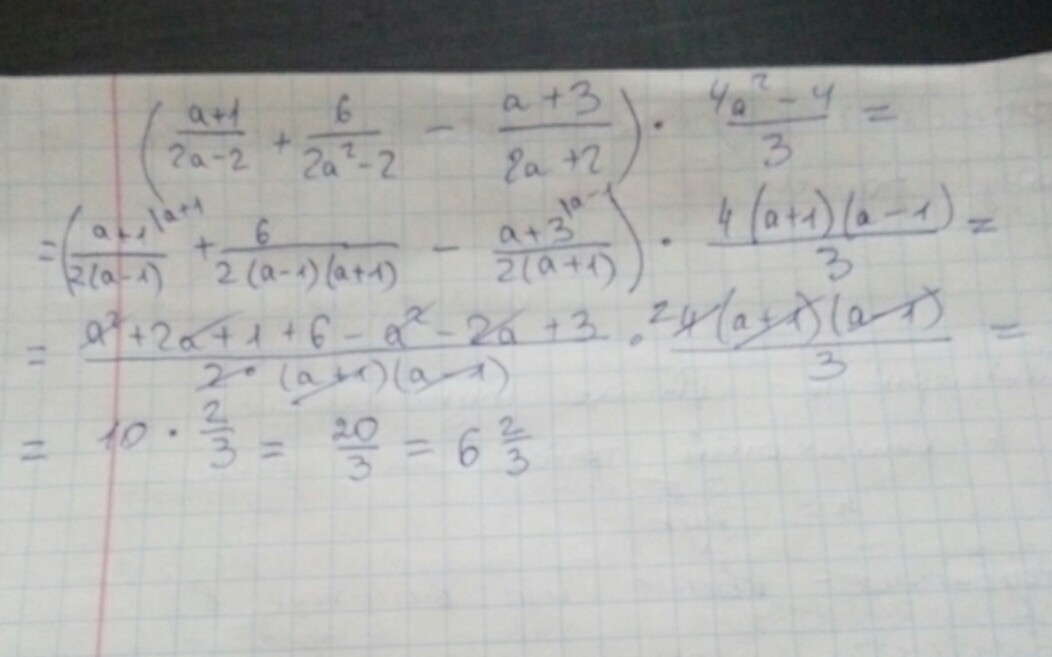 ( (a+1)/(2a-2) + 6/(2a²-2) - (a+3)/(2a+2) ) · (4a²-4)/3 =
= ( (a+1)/(2(a-1)) |a+1 + 6/(2(a-1)(a+1)) - (a+3)/(2(a+1)) |a-1 ) · 4(a+1)(a-1)/3 =
= (a²+2a+1+6-a²-2a+3)/(2·(a+1)(a-1)) · 2 4(a+1)(a-1)/3 =
= 10 · 2/3 = 20/3 = 6 2/3